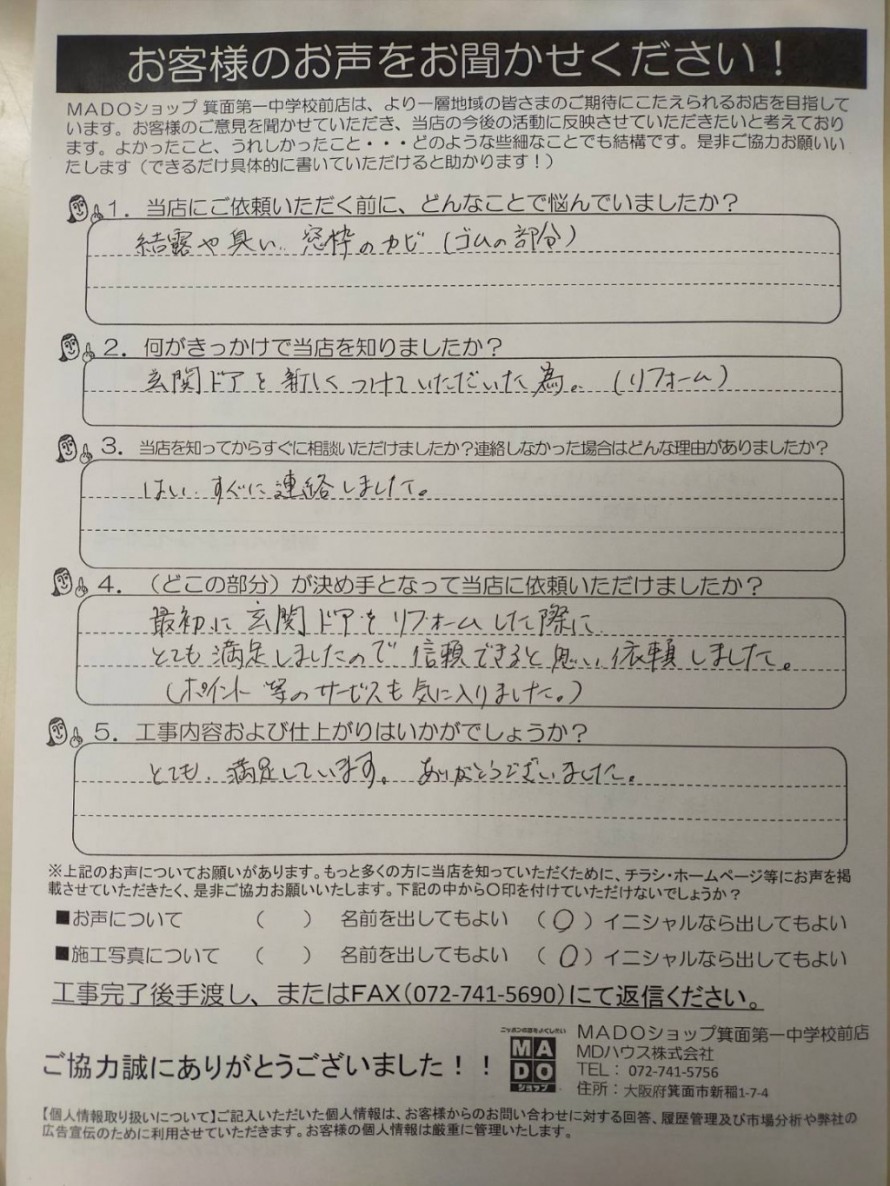 お客様のお声をお聞かせください！
MADOショップ 箕面第一中学校前店は、より一層地域の皆さまのご期待にこたえられるお店を目指して
います。お客様のご意見を聞かせていただき、当店の今後の活動に反映させていただきたいと考えており
ます。よかったこと、うれしかったこと・・・どのような些細なことでも結構です。是非ご協力お願いい
たします（できるだけ具体的に書いていただけると助かります！）
1．当店にご依頼いただく前に、どんなことで悩んでいましたか？
結露や臭い、窓枠のカビ（ゴムの部分）
2．何がきっかけで当店を知りましたか？
玄関ドアを新しくつけていただいた為。（リフォーム）
3．当店を知ってからすぐに相談いただけましたか？連絡しなかった場合はどんな理由がありましたか？
はい、すぐに連絡しました。
4．（どこの部分）が決め手となって当店に依頼いただけましたか？
最初に玄関ドアをリフォームした際に
とても満足しましたので信頼できると思い依頼しました。
（ポイント等のサービスも気に入りました。）
5．工事内容および仕上がりはいかがでしょうか？
とても、満足しています。ありがとうございました。
※上記のお声についてお願いがあります。もっと多くの方に当店を知っていただくために、チラシ・ホームページ等にお声を掲
載させていただきたく、是非ご協力お願いいたします。下記の中から〇印を付けていただけないでしょうか？
■お声について （ ） 名前を出してもよい （〇）イニシャルなら出してもよい
■施工写真について （ ） 名前を出してもよい （〇）イニシャルなら出してもよい
工事完了後手渡し、またはFAX（072-741-5690）にて返信ください。
ご協力誠にありがとうございました！！
MADO
ショップ
MADOショップ箕面第一中学校前店
MDハウス株式会社
TEL： 072-741-5756
住所：大阪府箕面市新稲1-7-4
【個人情報取り扱いについて】ご記入いただいた個人情報は、お客様からのお問い合わせに対する回答、履歴管理及び市場分析や弊社の
広告宣伝のために利用させていただきます。お客様の個人情報は厳重に管理いたします。